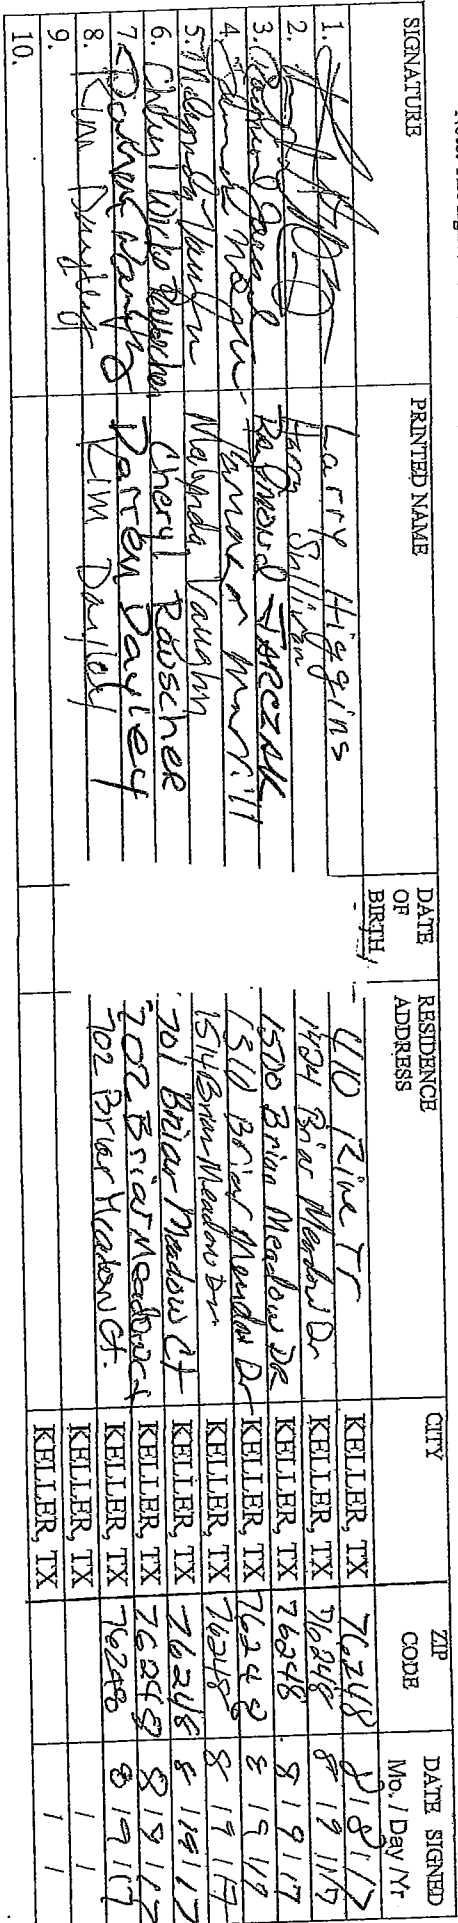 SIGNATURE PRINTED NAME DATE OF BIRTH RESIDENCE ADDRESS CITY ZIP CODE DATE SIGNED Mo. / Day / Yr
1. Larry Higgins 410 Pine Tr KELLER, TX 76248 8 / 8 / 17
2. Harry Sullivan 1424 Briar Meadow Dr KELLER, TX 76248 8 / 9 / 17
3. Raymond JARCZAK 1500 Briar Meadow DR KELLER, TX 76248 8 / 9 / 17
4. Tamara Morrill 1310 Briar Meadow Dr KELLER, TX 76248 8 / 9 / 17
5. Malynda Vaughn Malynda Vaughn 1514 Briar Meadow Dr KELLER, TX 76248 8 / 9 / 17
6. Cheryl Rauscher 701 Briar Meadow Ct KELLER, TX 76248 8 / 9 / 17
7. Darren Dayley 702 Briar Meadow Ct KELLER, TX 76248 8 / 9 / 17
8. Kim Dayley Kim Dayley 702 Briar Meadow Ct. KELLER, TX 76248 8 / 9 / 17
9. KELLER, TX / /
10. KELLER, TX / /